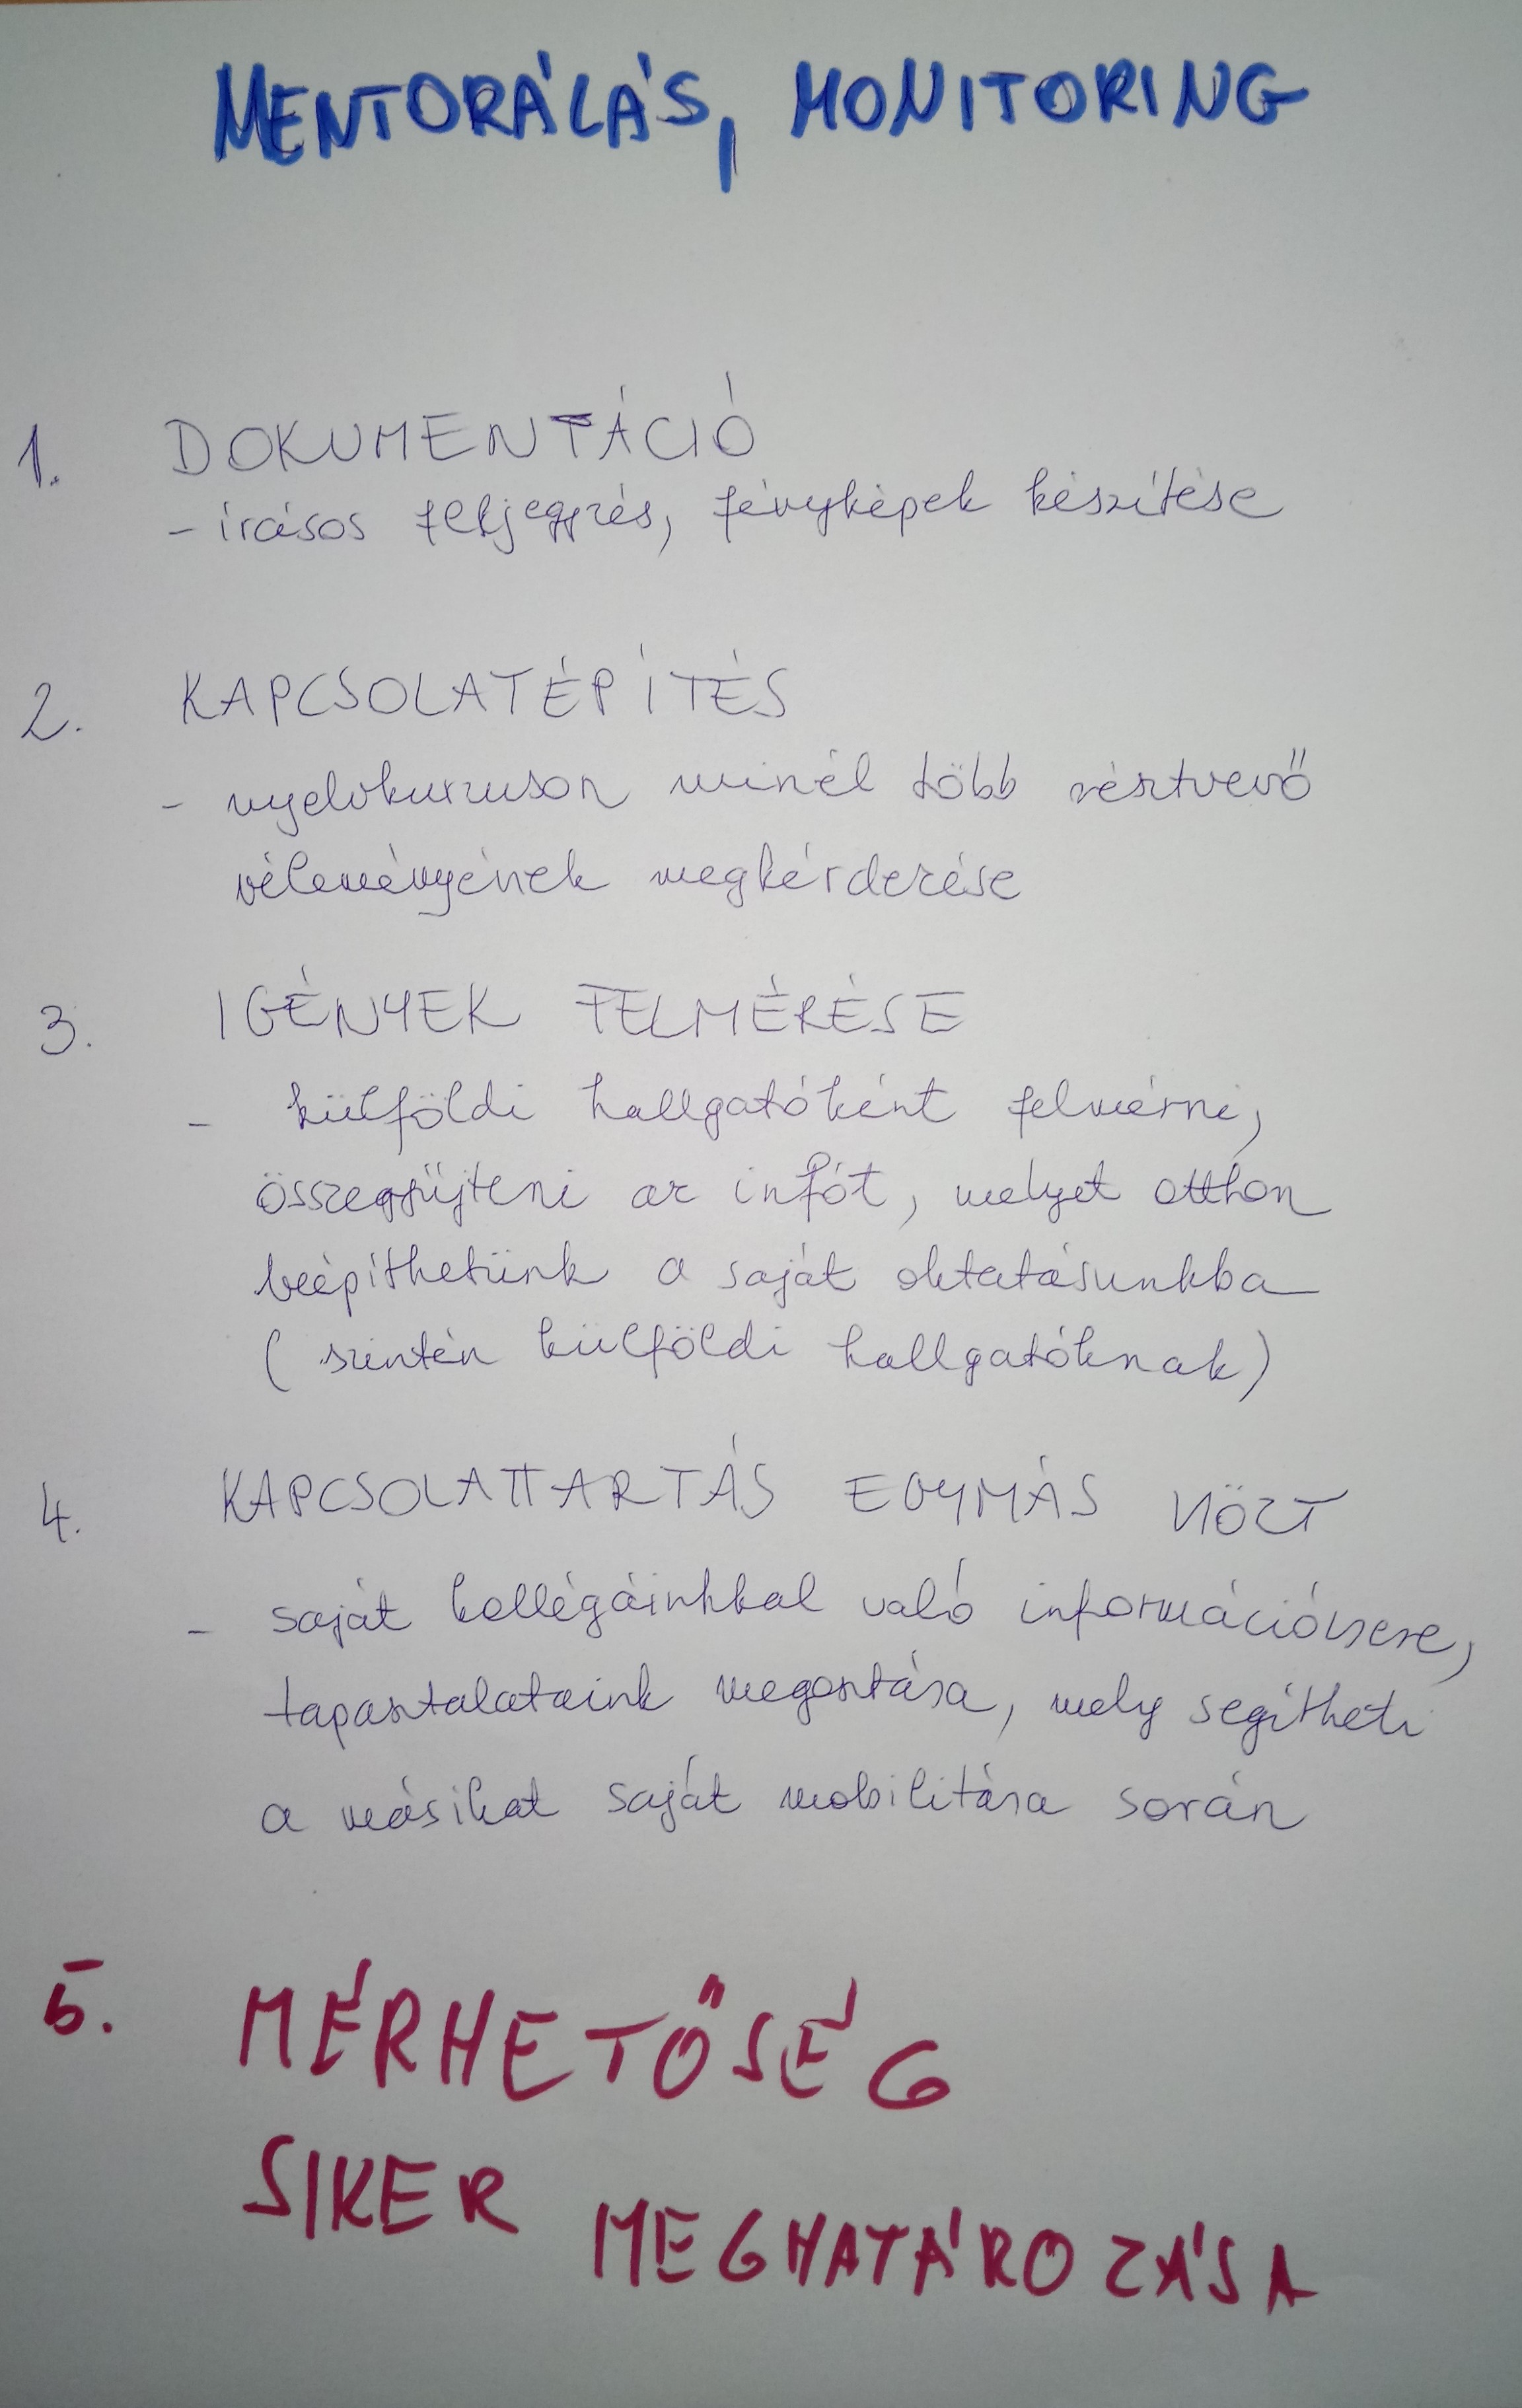 MENTORÁLÁS, MONITORING
1. DOKUMENTÁCIÓ
- írásos feljegyzés, fényképek készítése
2. KAPCSOLATÉPÍTÉS
- nyelvkurzuson minél több résztvevő
véleményének megkérdezése
3. IGÉNYEK FELMÉRÉSE
- külföldi hallgatóként felmérni,
összegyűjteni az infót, melyet otthon
beépíthetünk a saját oktatásunkba
(szintén külföldi hallgatóknak)
4. KAPCSOLATTARTÁS EGYMÁS KÖZT
- saját kollégáinkkal való információcsere,
tapasztalataink megosztása, mely segítheti
a másikat saját mobilitása során
5. MÉRHETŐSÉG
SIKER MEGHATÁROZÁSA